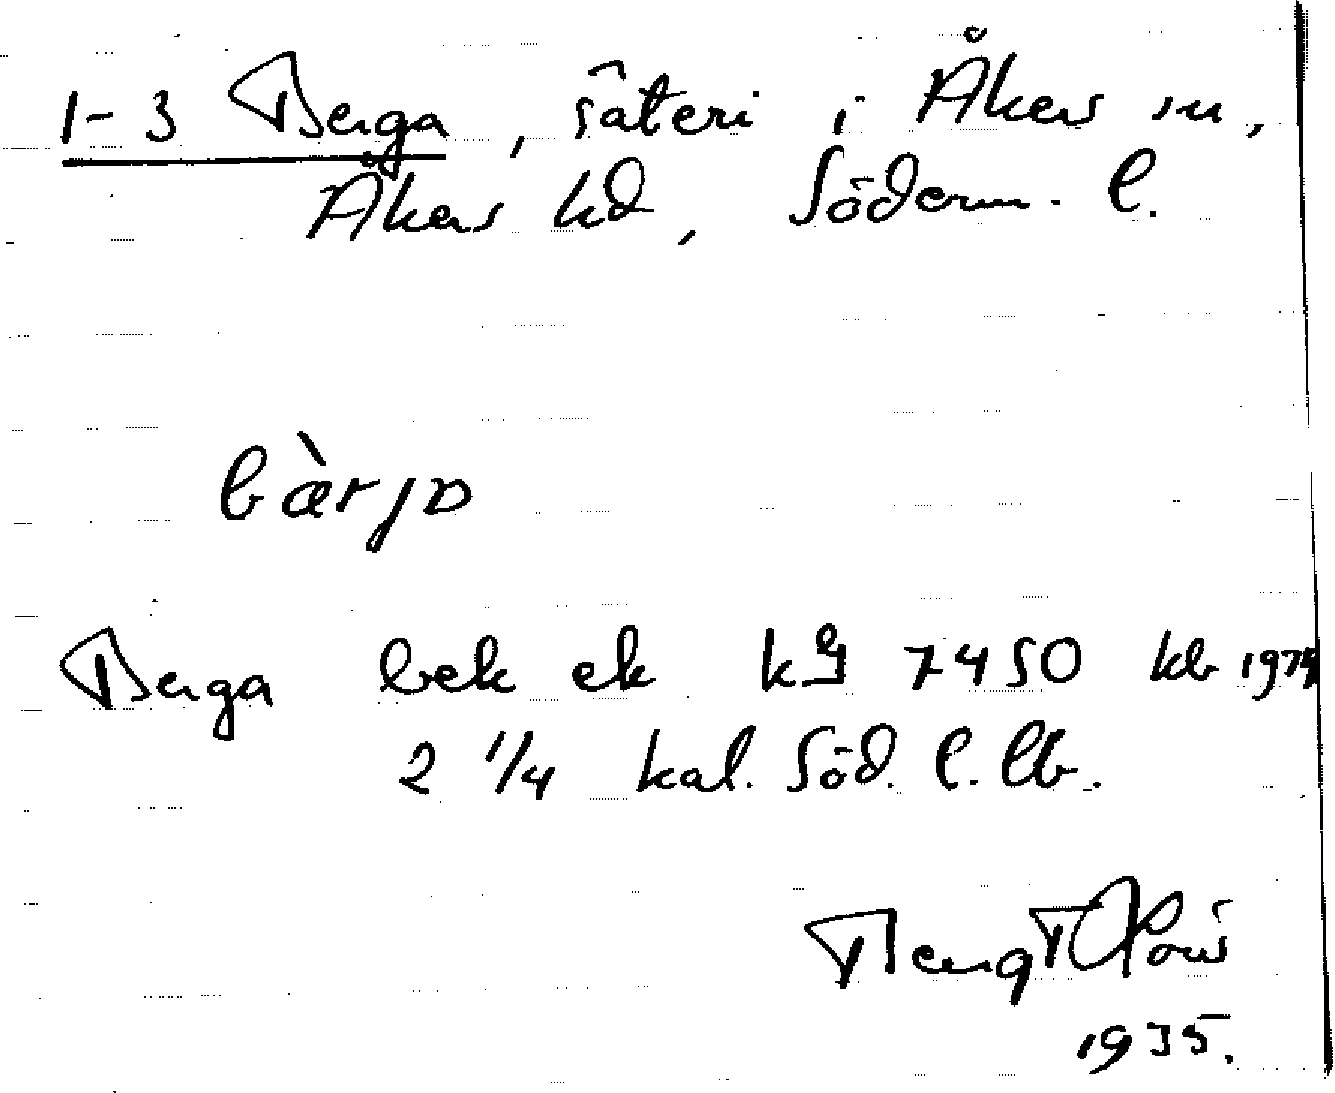 1-3 Berga, säteri i Åkers sn,
Åkers hd, Söderm. l.
bærjɒ
Berga bek ek kg 7450 kb
2 1/4 kal. Söd. l. lb.
Bengt
1935.